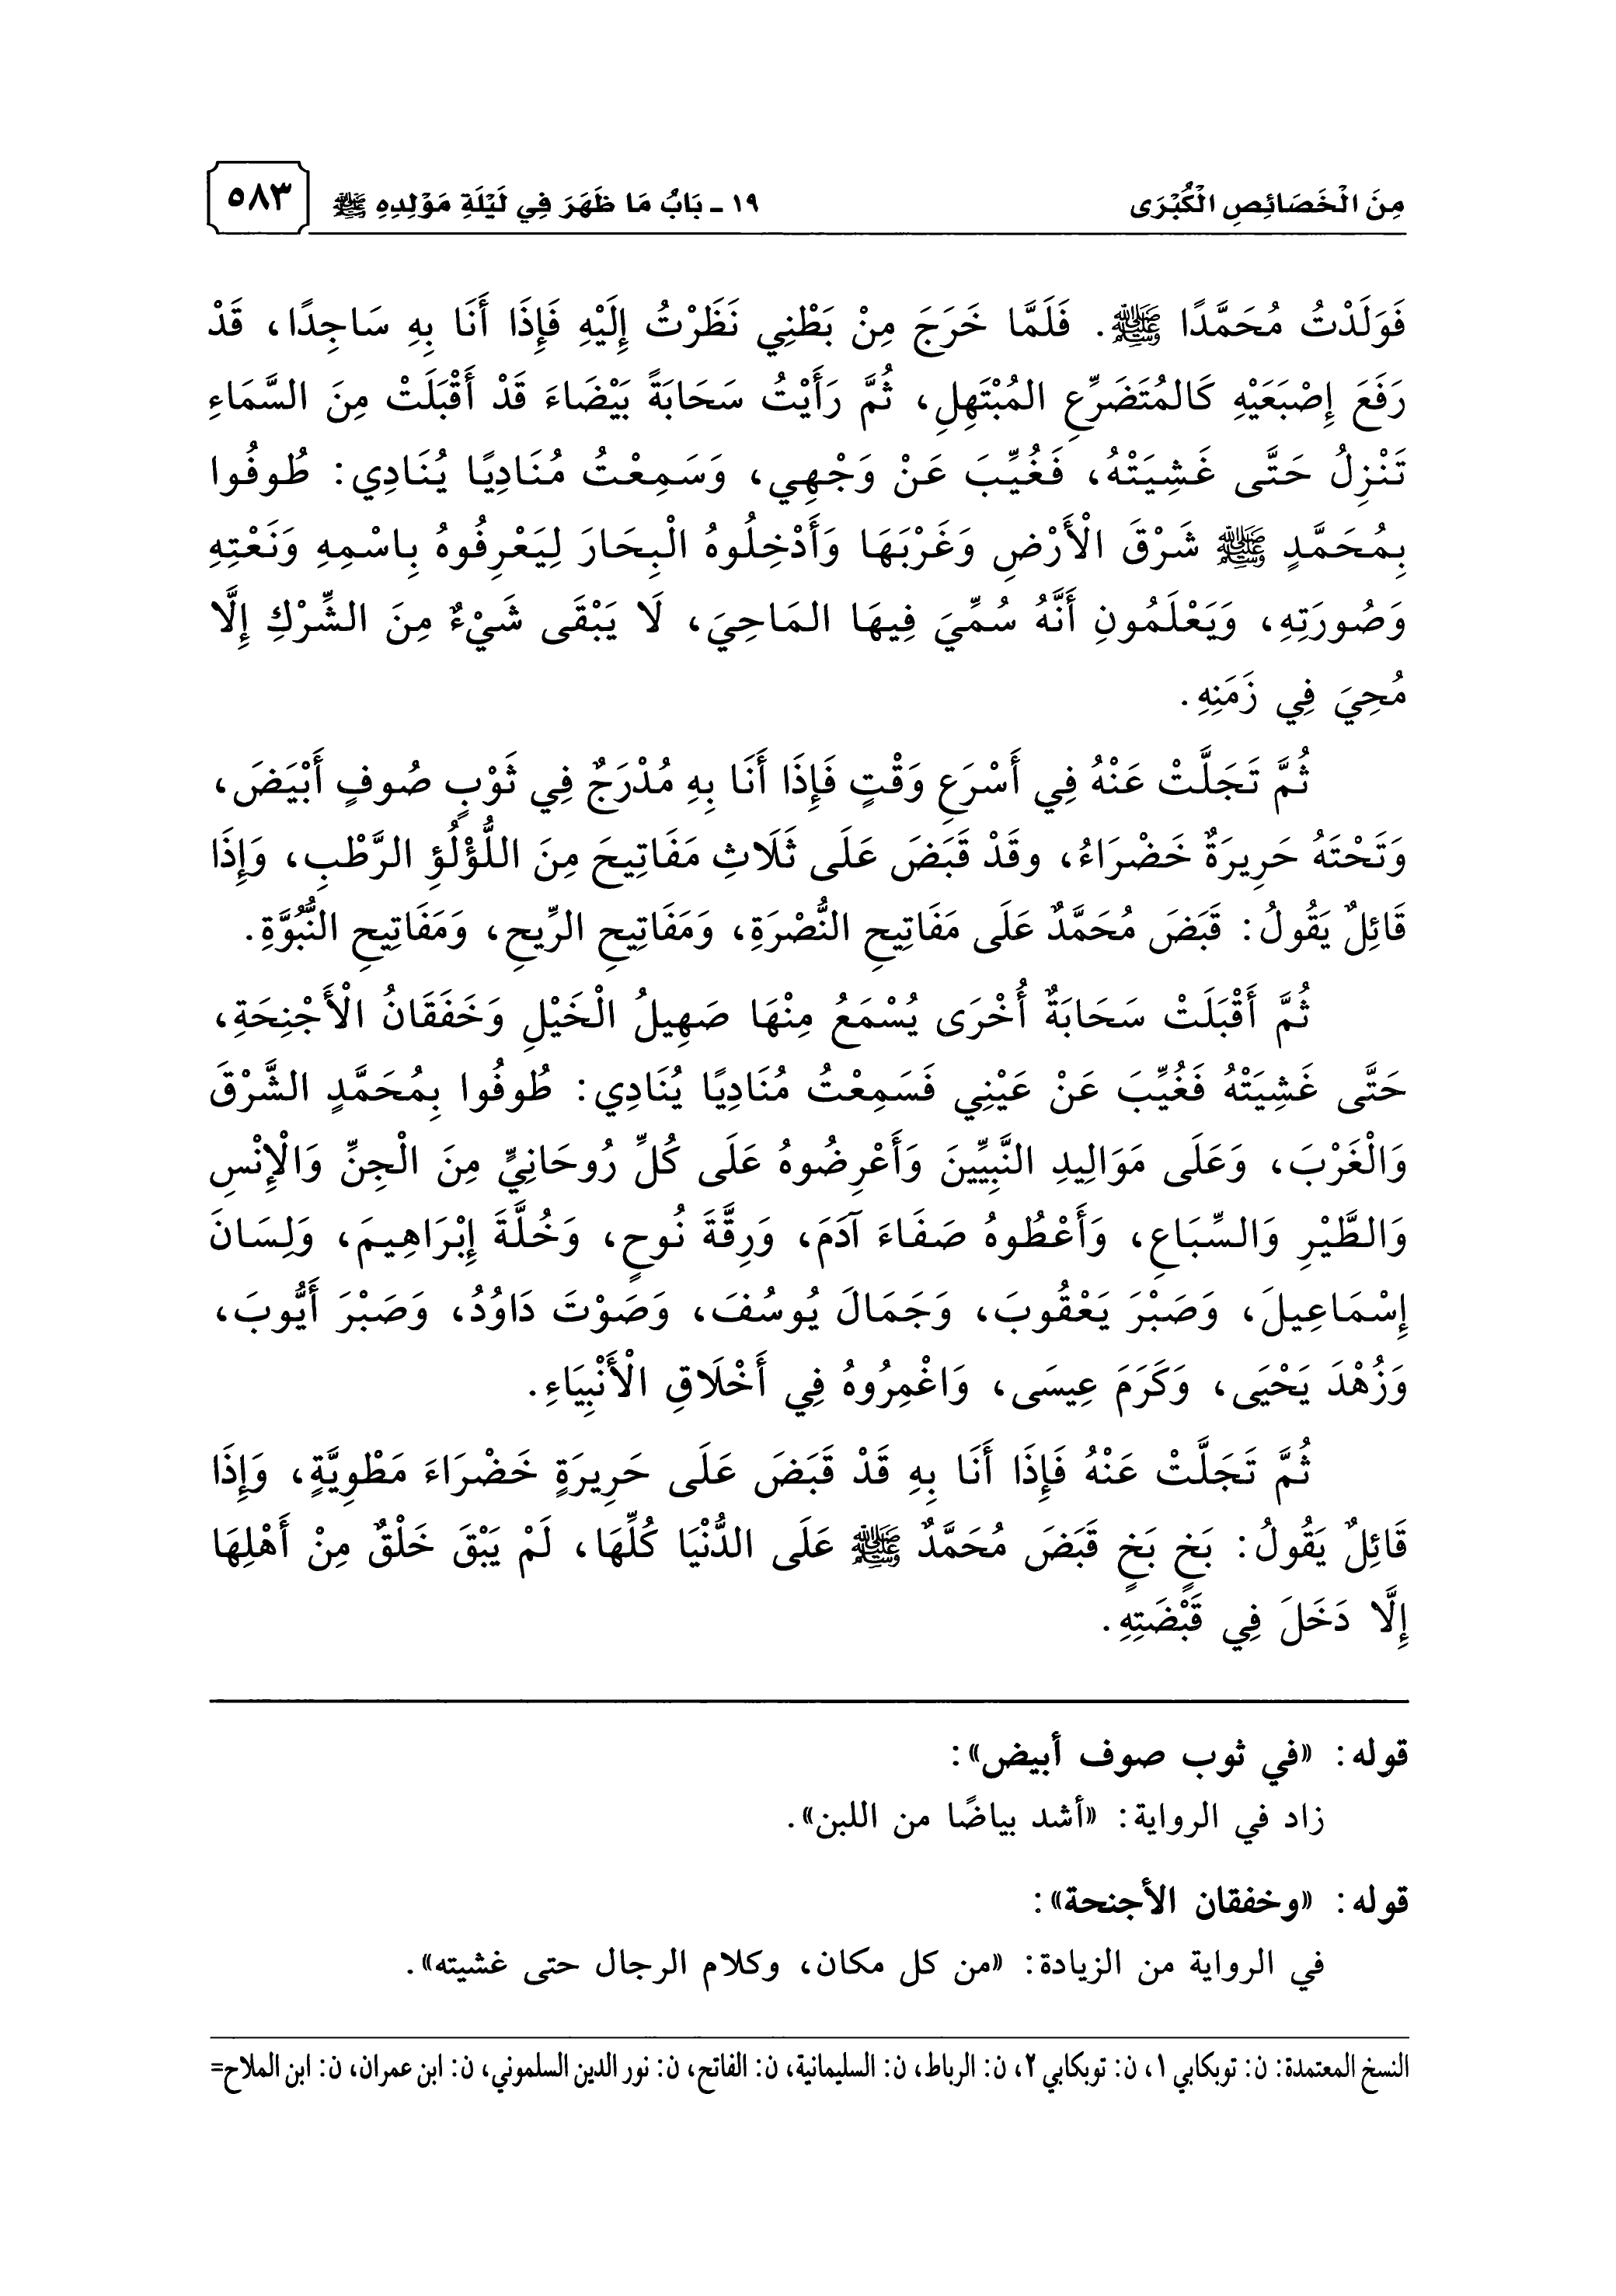 مِنَ الْخَصَائِصِ الْكُبْرَى ١٩ ـ بَابُ مَا ظَهَرَ فِي لَيْلَةِ مَوْلِدِهِ ﷺ ٥٨٣
فَوَلَدْتُ مُحَمَّدًا ﷺ. فَلَمَّا خَرَجَ مِنْ بَطْنِي نَظَرْتُ إِلَيْهِ فَإِذَا أَنَا بِهِ سَاجِدًا، قَدْ
رَفَعَ إِصْبَعَيْهِ كَالمُتَضَرِّعِ المُبْتَهِلِ، ثُمَّ رَأَيْتُ سَحَابَةً بَيْضَاءَ قَدْ أَقْبَلَتْ مِنَ السَّمَاءِ
تَنْزِلُ حَتَّى غَشِيَتْهُ، فَغُيِّبَ عَنْ وَجْهِي، وَسَمِعْتُ مُنَادِيًا يُنَادِي: طُوفُوا
بِمُحَمَّدٍ ﷺ شَرْقَ الْأَرْضِ وَغَرْبَهَا وَأَدْخِلُوهُ الْبِحَارَ لِيَعْرِفُوهُ بِاسْمِهِ وَنَعْتِهِ
وَصُورَتِهِ، وَيَعْلَمُونِ أَنَّهُ سُمِّيَ فِيهَا المَاحِيَ، لَا يَبْقَى شَيْءٌ مِنَ الشِّرْكِ إِلَّا
مُحِيَ فِي زَمَنِهِ.
ثُمَّ تَجَلَّتْ عَنْهُ فِي أَسْرَعِ وَقْتٍ فَإِذَا أَنَا بِهِ مُدْرَجٌ فِي ثَوْبٍ صُوفٍ أَبْيَضَ،
وَتَحْتَهُ حَرِيرَةٌ خَضْرَاءُ، وقَدْ قَبَضَ عَلَى ثَلَاثِ مَفَاتِيحَ مِنَ اللُّؤْلُؤِ الرَّطْبِ، وَإِذَا
قَائِلٌ يَقُولُ: قَبَضَ مُحَمَّدٌ عَلَى مَفَاتِيحِ النُّصْرَةِ، وَمَفَاتِيحِ الرِّيحِ، وَمَفَاتِيحِ النُّبُوَّةِ.
ثُمَّ أَقْبَلَتْ سَحَابَةٌ أُخْرَى يُسْمَعُ مِنْهَا صَهِيلُ الْخَيْلِ وَخَفَقَانُ الْأَجْنِحَةِ،
حَتَّى غَشِيَتْهُ فَغُيِّبَ عَنْ عَيْنِي فَسَمِعْتُ مُنَادِيًا يُنَادِي: طُوفُوا بِمُحَمَّدٍ الشَّرْقَ
وَالْغَرْبَ، وَعَلَى مَوَالِيدِ النَّبِيِّينَ وَأَعْرِضُوهُ عَلَى كُلِّ رُوحَانِيٍّ مِنَ الْجِنِّ وَالْإِنْسِ
وَالطَّيْرِ وَالسِّبَاعِ، وَأَعْطُوهُ صَفَاءَ آدَمَ، وَرِقَّةَ نُوحٍ، وَخُلَّةَ إِبْرَاهِيمَ، وَلِسَانَ
إِسْمَاعِيلَ، وَصَبْرَ يَعْقُوبَ، وَجَمَالَ يُوسُفَ، وَصَوْتَ دَاوُدُ، وَصَبْرَ أَيُّوبَ،
وَزُهْدَ يَحْيَى، وَكَرَمَ عِيسَى، وَاغْمِرُوهُ فِي أَخْلَاقِ الْأَنْبِيَاءِ.
ثُمَّ تَجَلَّتْ عَنْهُ فَإِذَا أَنَا بِهِ قَدْ قَبَضَ عَلَى حَرِيرَةٍ خَضْرَاءَ مَطْوِيَّةٍ، وَإِذَا
قَائِلٌ يَقُولُ: بَخٍ بَخٍ قَبَضَ مُحَمَّدٌ ﷺ عَلَى الدُّنْيَا كُلِّهَا، لَمْ يَبْقَ خَلْقٌ مِنْ أَهْلِهَا
إِلَّا دَخَلَ فِي قَبْضَتِهِ.
قوله: «في ثوب صوف أبيض»:
زاد في الرواية: «أشد بياضًا من اللبن».
قوله: «وخفقان الأجنحة»:
في الرواية من الزيادة: «من كل مكان، وكلام الرجال حتى غشيته».
النسخ المعتمدة: ن: توبكابي ١، ن: توبكابي ٢، ن: الرباط، ن: السليمانية، ن: الفاتح، ن: نور الدين السلموني، ن: ابن عمران، ن: ابن الملاح=